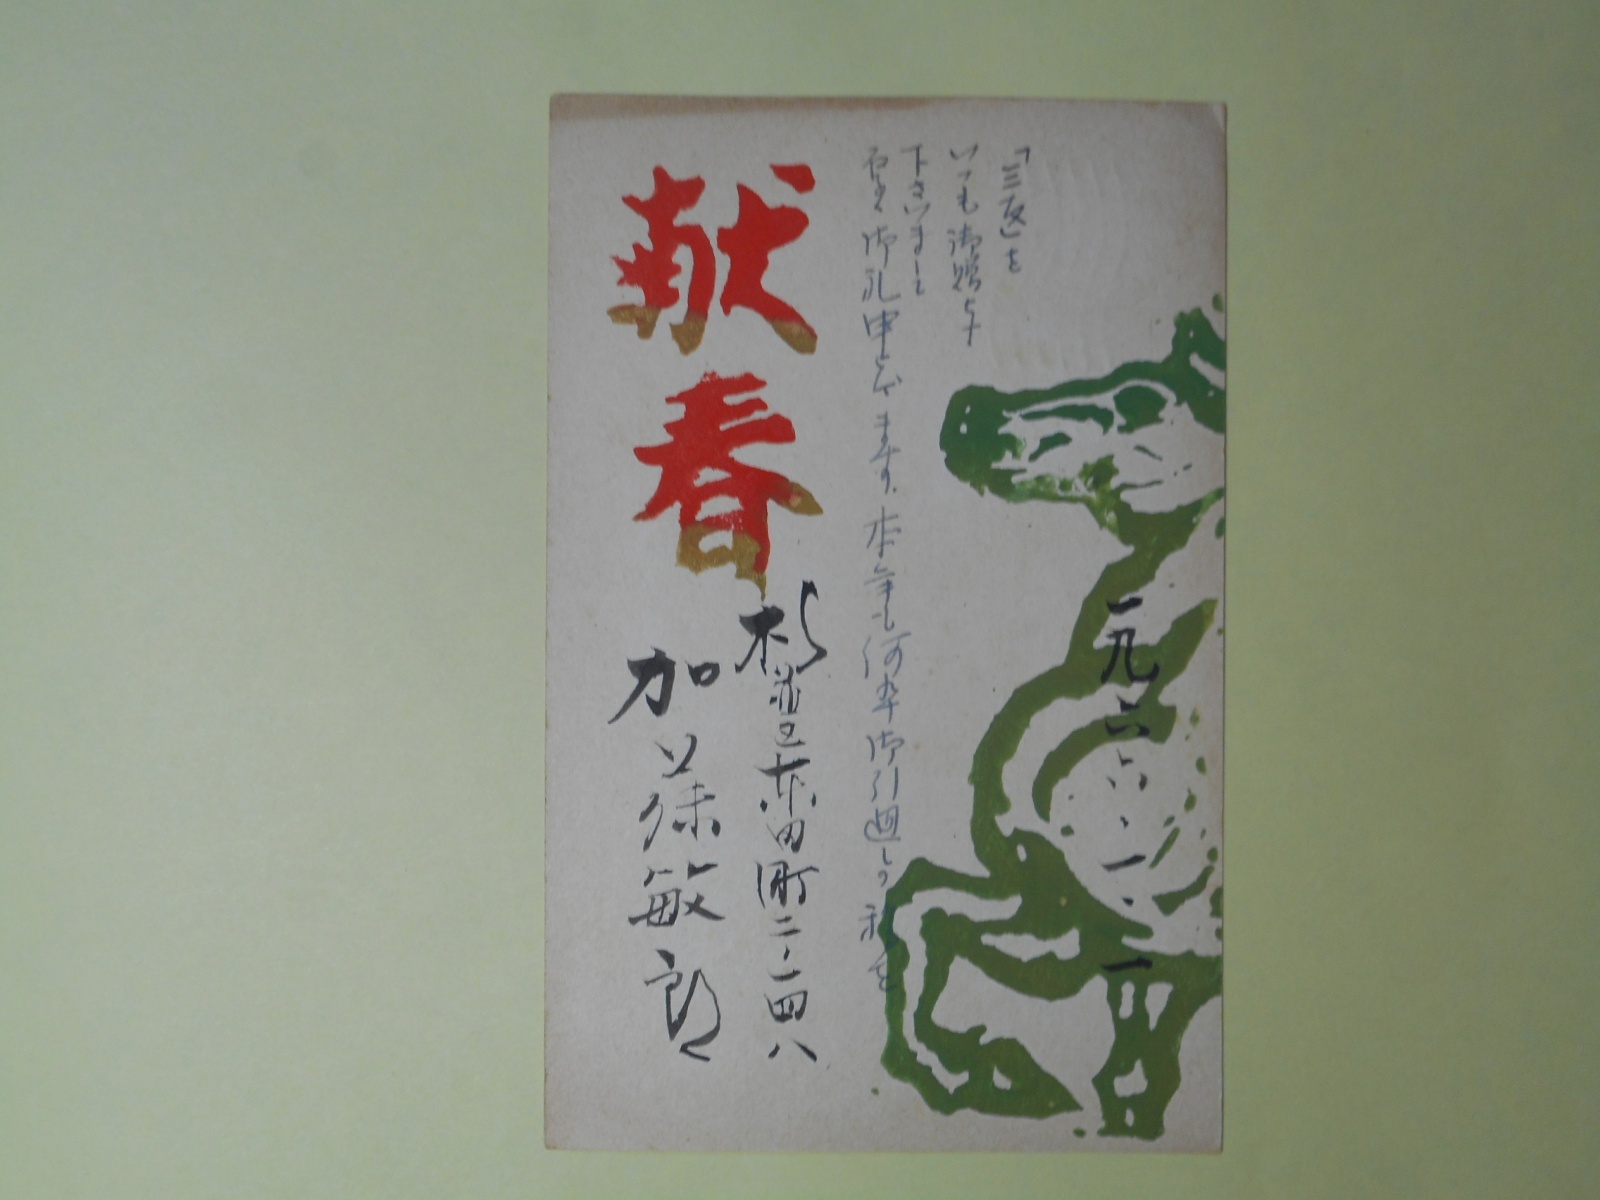 一九六六、一、一
「三友」を
いつも御贈与
下さいまして
有難く御礼申上げます。本年も何卒御引廻しの程を
献春
杉並区東田町二ノ一四八
加藤敏郎